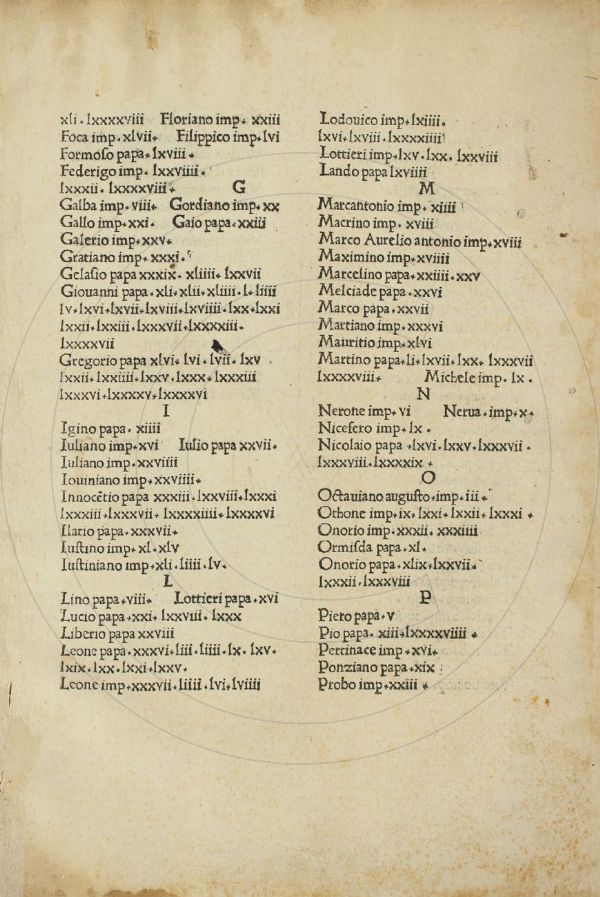 xli. lxxxxviii Floriano imp. xxiii
Foca imp. xlvii. Filippico imp. lvi
Formoso papa. lxviii.
Federigo imp. lxxviiii.
lxxxii. lxxxxviii. G
Galba imp. viii. Gordiano imp. xx
Gallo imp. xxi. Gaio papa. xxiii
Galerio imp. xxv.
Gratiano imp. xxxi.
Gelasio papa xxxix. xliiii. lxxvii
Giouanni papa. xli. xlii. xliiii. l. liiii
lv. lxvi. lxvii. lxviii. lxviiii. lxx. lxxi
lxxii. lxxiii. lxxxvii. lxxxxiii.
lxxxxvii
Gregorio papa xlvi. lvi. lvii. lxv
lxxii. lxxiiii. lxxv. lxxx. lxxxiii
lxxxvi. lxxxxv. lxxxxvi
I
Igino papa. xiiii
Iuliano imp. xvi Iulio papa xxvii.
Iuliano imp. xxviiii
Iouiniano imp. xxviiii.
Innocētio papa xxxiii. lxxviii. lxxxi
lxxxiii. lxxxvii. lxxxxiiii. lxxxxvi
Ilario papa. xxxvii.
Iustino imp. xl. xlv
Iustiniano imp. xli. liiii. lv.
L
Lino papa. viii. Lottieri papa. xvi
Lucio papa. xxi. lxxviii. lxxx
Liberio papa xxviii
Leone papa. xxxvi. liii. liiii. lx. lxv.
lxix. lxx. lxxi. lxxv.
Leone imp. xxxvii. liiii. lvi. lviiii
Lodouico imp. lxiiii.
lxvi. lxviii. lxxxxiiii
Lottieri imp. lxv. lxx. lxxviii
Lando papa lxviiii
M
Marcantonio imp. xiiii
Macrino imp. xviii
Marco Aurelio antonio imp. xviii
Maximino imp. xviiii
Marcelino papa. xxiiii. xxv
Melciade papa. xxvi
Marco papa. xxvii
Martiano imp. xxxvi
Mauritio imp. xlvi
Martino papa. li. lxvii. lxx. lxxxvii
lxxxxviii. Michele imp. lx.
N
Nerone imp. vi Nerua. imp. x.
Nicefero imp. lx.
Nicolaio papa. lxvi. lxxv. lxxxvii.
lxxxviii. lxxxxix.
O
Octauiano augusto. imp. iii.
Othone imp. ix. lxxi. lxxii. lxxxi.
Onorio imp. xxxii. xxxiiii
Ormisda papa. xl.
Onorio papa. xlix. lxxvii.
lxxxii. lxxxviii
P
Piero papa. v
Pio papa. xiii. lxxxxviiii.
Pertinace imp. xvi.
Ponziano papa. xix
Probo imp. xxiii.